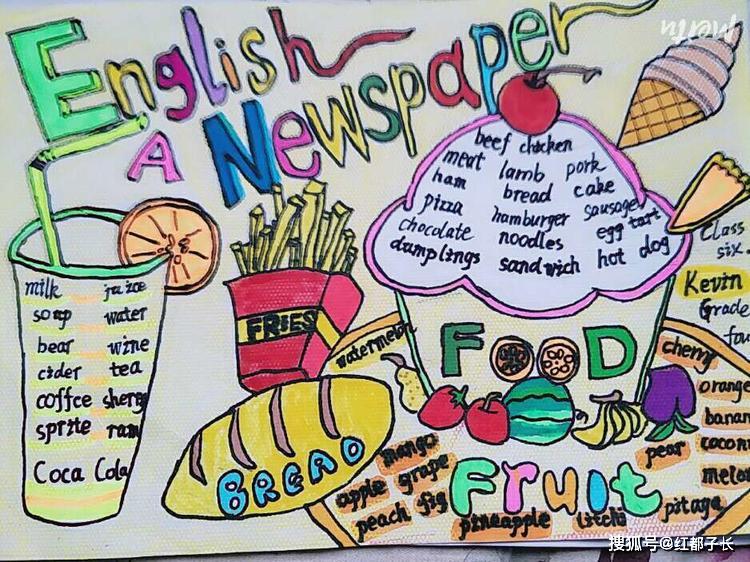 English
A Newspaper
beef chicken
meat lamb pork
ham bread cake
pizza hamburger sausage
chocolate noodles egg tart
dumplings sandwich hot dog
Class
six.
Kevin
Grade
fou
milk juice
water
bear wine
cider tea
coffee sherry
sprite ram
Coca Cola
FRIES
BREAD
FOOD
watermelon
cherry
orange
banan
coconu
pear
melon
pitaya
mango
apple grape
peach fig
pineapple
litchi
Fruit
搜狐号@红都子长